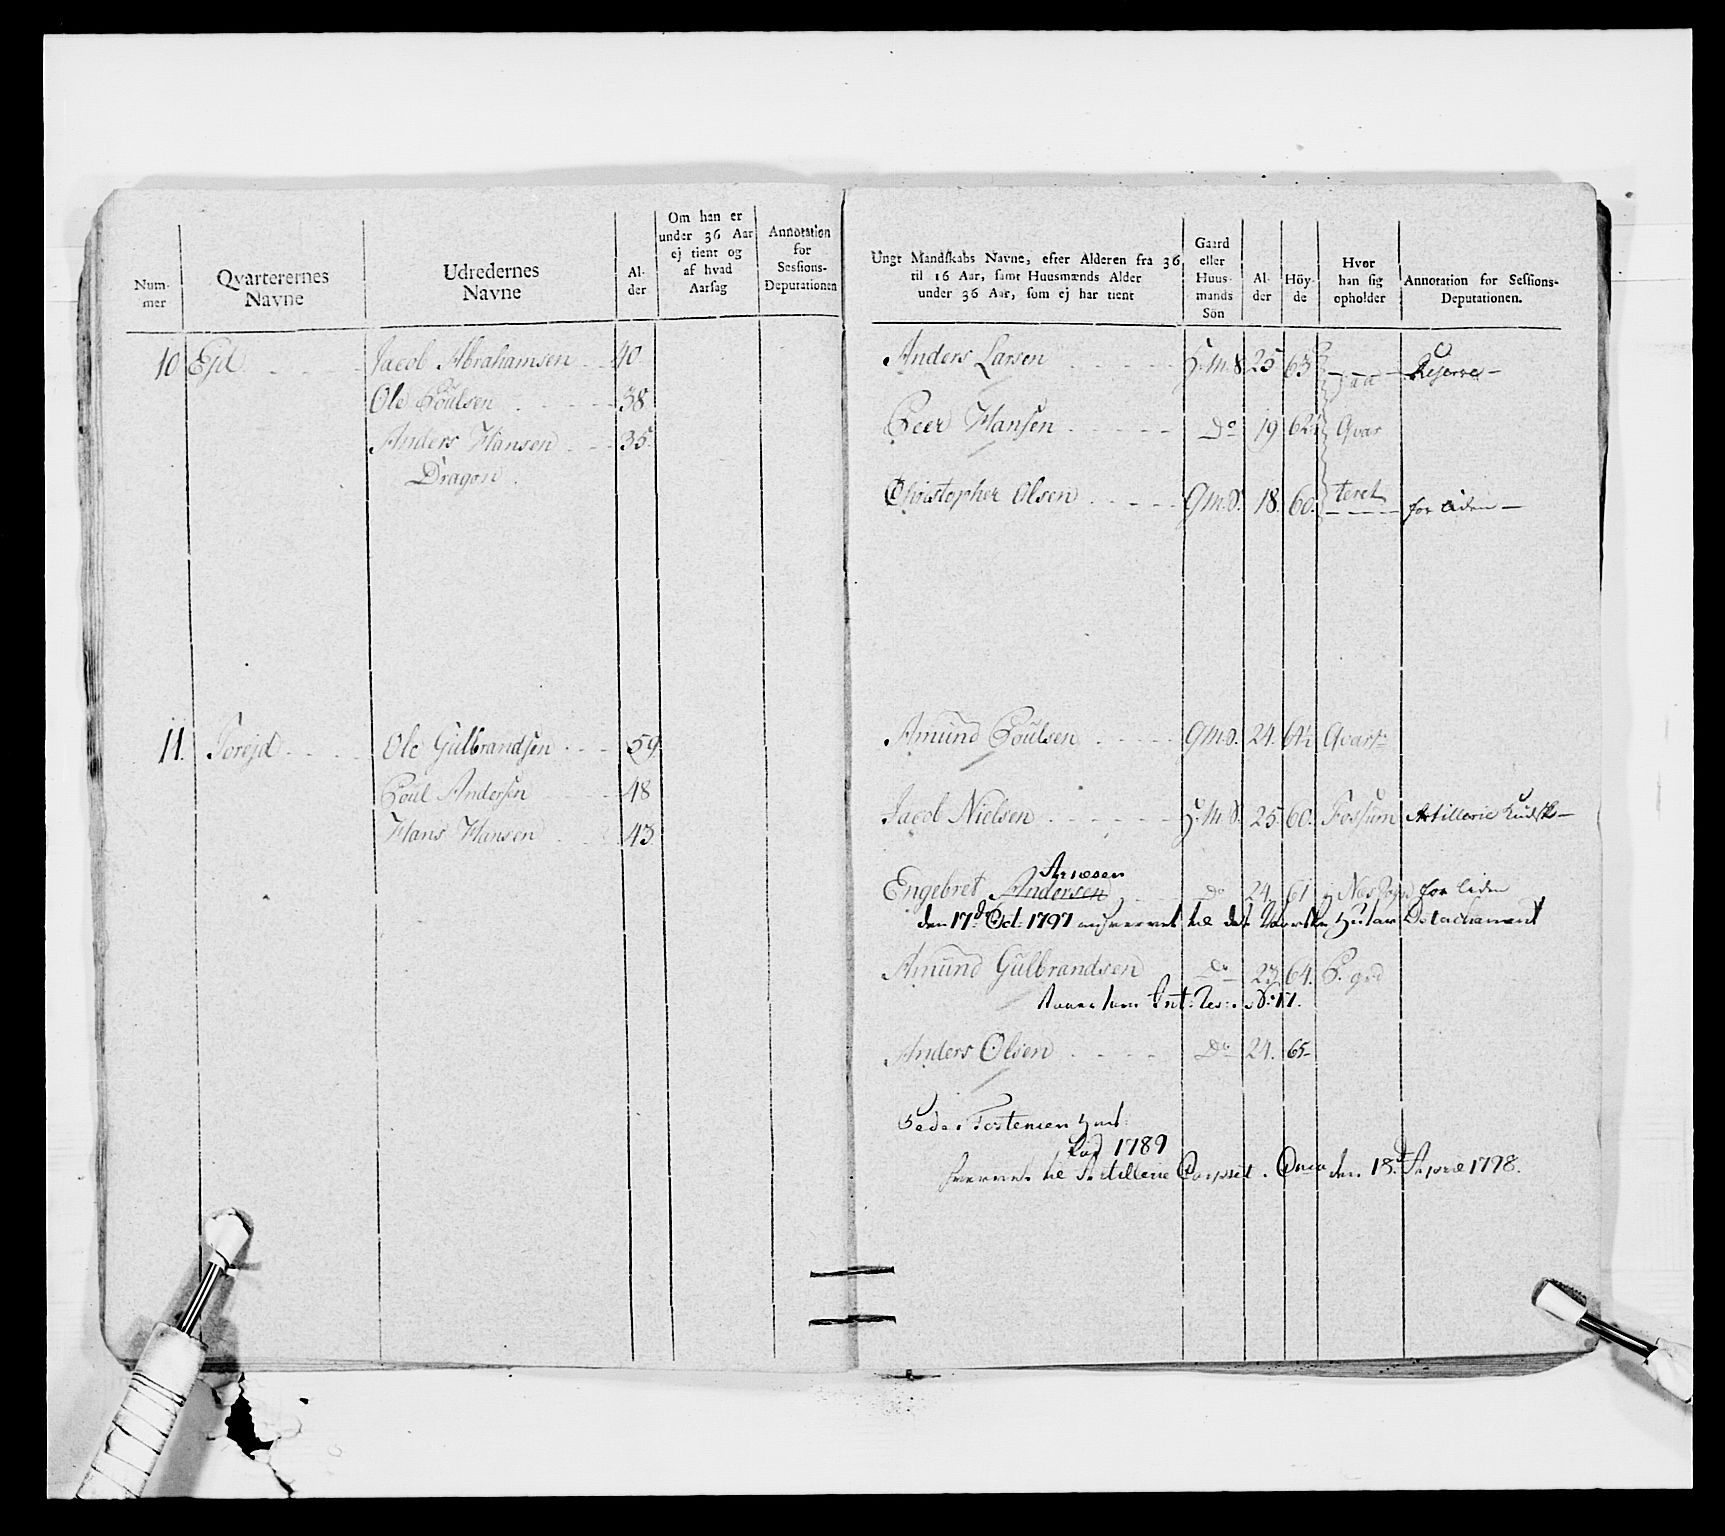 Num-
mer
Qvarterernes
Navne
Udredernes
Navne
Al-
der
Om han er
under 36 Aar
ej tient og
af hvad
Aarsag
Annotation
for
Sessions-
Deputationen
10. Ejd
Jacob Abrahamsen 40
Ole Poulsen 38
Anders Hansen 35
Dragon
11. Torejd
Ole Gulbrandsen 59
Poul Andersen 48
Hans Hansen 43
Ungt Mandskabs Navne, efter Alderen fra 36
til 16 Aar, samt Huusmænds Alder
under 36 Aar, som ej har tient
Gaard
eller
Huus-
mands
Sön
Al-
der
Höy-
de
Hvor
han sig
opholder
Annotation for Sessions-
Deputationen.
Anders Larsen H.M.S. 25 63 Paa Reserve
Peer Hansen Do 19 62 Qvar
Christopher Olsen G.M.S. 18. 60. teret for liden
Amund Poulsen G.M.S. 24. 64½ Qvart
Jacob Nielsen H.M.S. 25. 60. Fossum Artillerie Kudsk
Arnesen
Engebret Andersen Do 24. 61 Næs for liden
den 17d Oct: 1797 til det Norske Husar Detachement
Amund Gulbrandsen Do 23. 64. P. grd
Anders Olsen Do 24. 65
Peder Tostensen
1789
til Artillerie Corpset. den 18d April 1798.